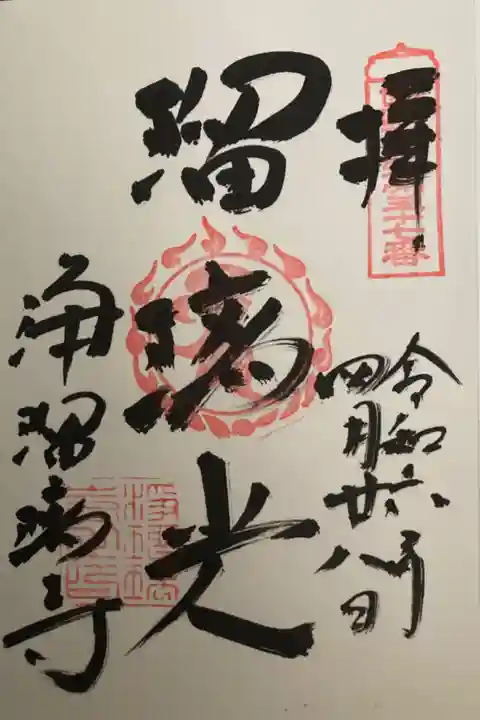 拝
三十七番
令和六年
四月廿八日
瑠璃光
浄瑠璃寺